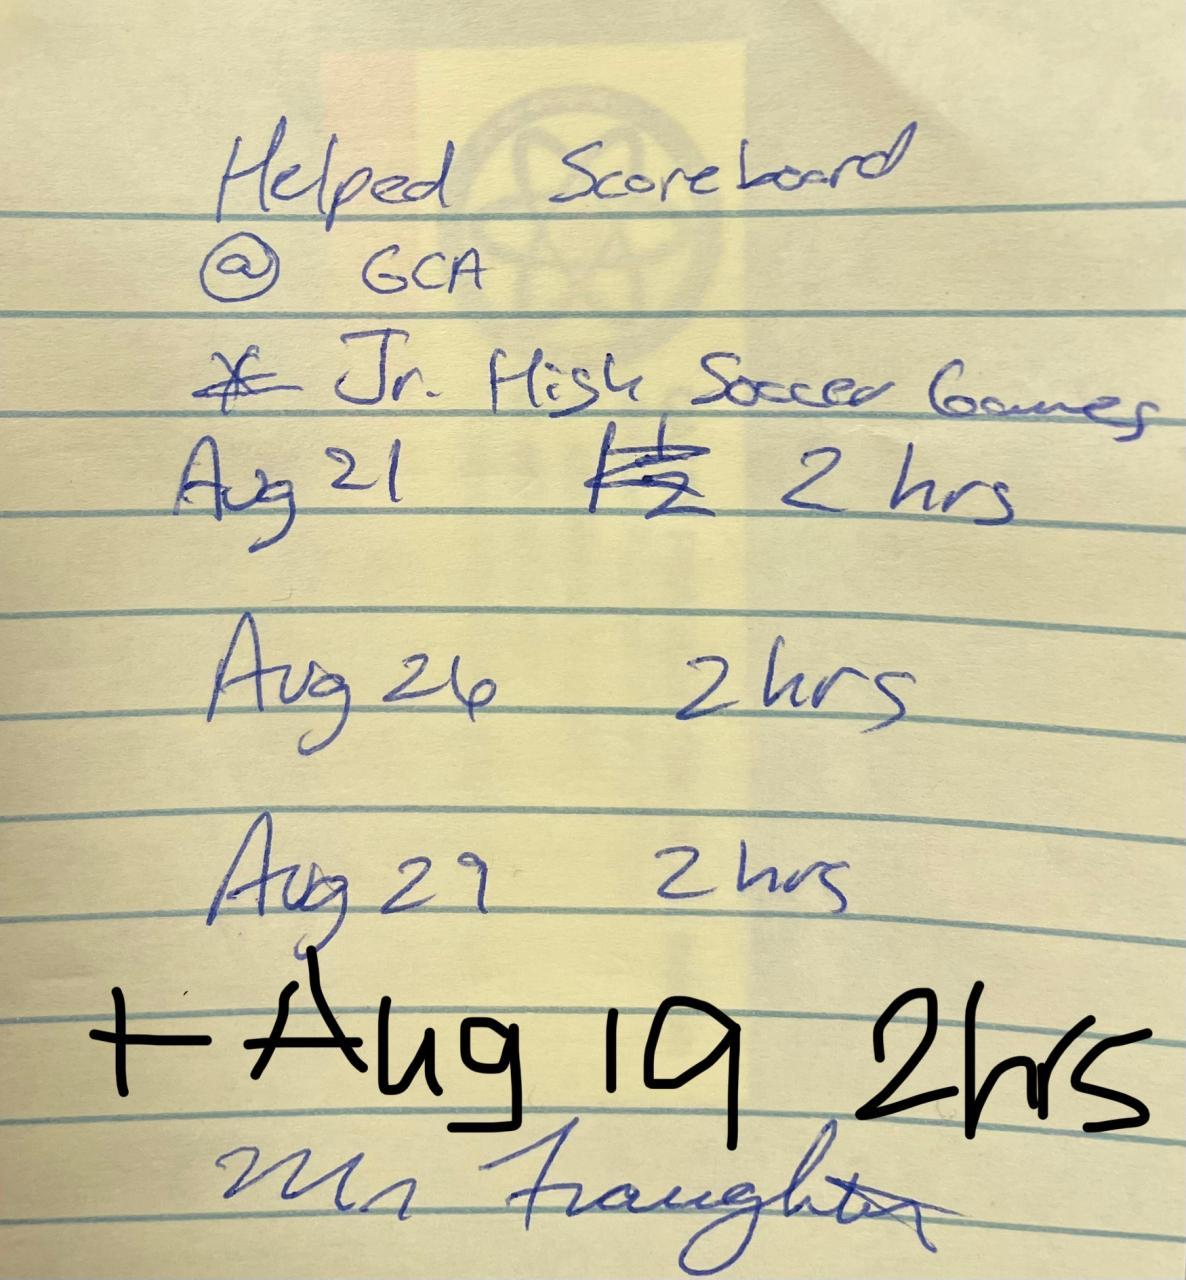 Helped Scoreboard
@ GCA
* Jr. High Soccer Games
Aug 21 1 1/2 2 hrs
Aug 26 2 hrs
Aug 29 2 hrs
+ Aug 19 2hrs
Mr Fraught